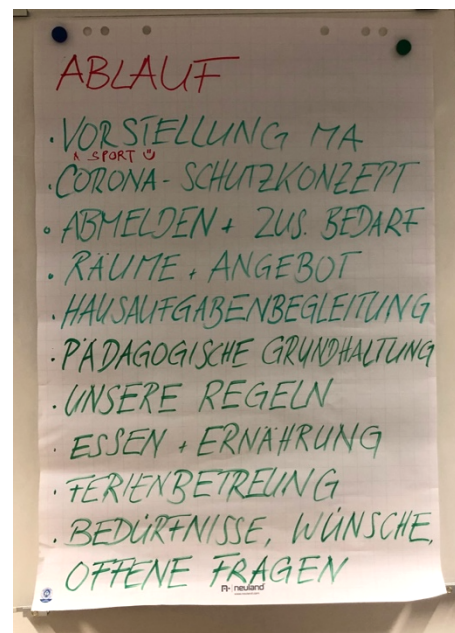 ABLAUF
• VORSTELLUNG MA
^ SPORT ☺
• CORONA - SCHUTZKONZEPT
• ABMELDEN + ZUS. BEDARF
• RÄUME + ANGEBOT
• HAUSAUFGABENBEGLEITUNG
• PÄDAGOGISCHE GRUNDHALTUNG
• UNSERE REGELN
• ESSEN + ERNÄHRUNG
• FERIENBETREUNG
• BEDÜRFNISSE, WÜNSCHE,
OFFENE FRAGEN
neuland